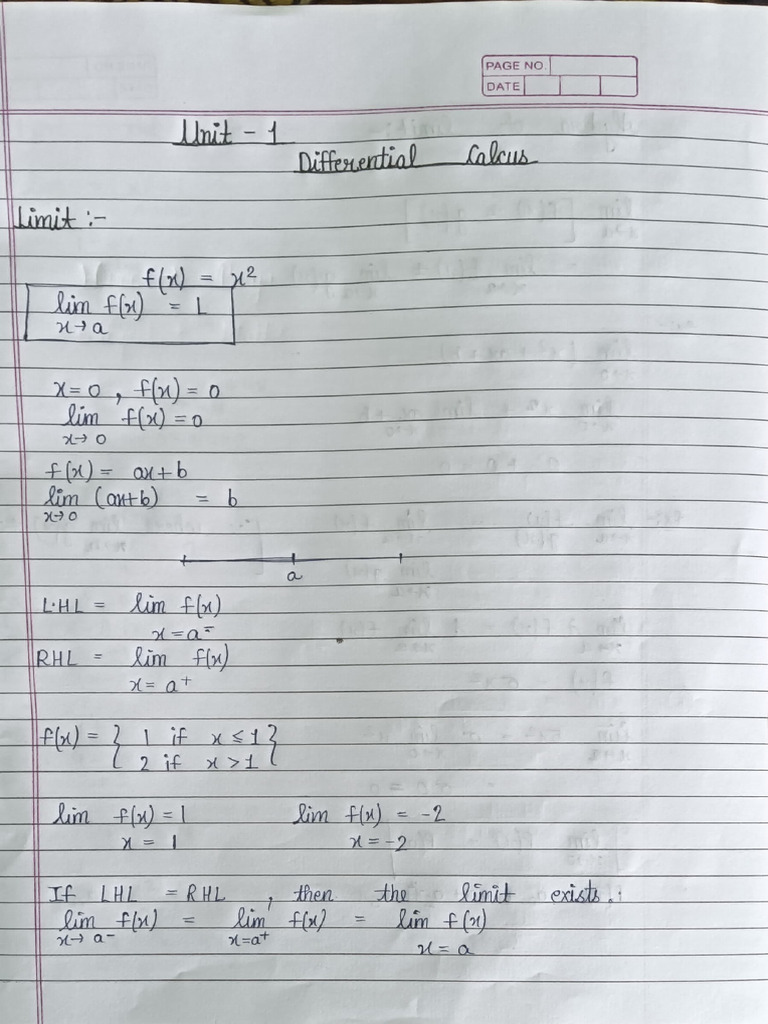 PAGE NO.
DATE
Unit - 1
Differential Calcus
Limit :-
f(x) = x²
lim f(x) = L
x→a
x=0 , f(x) = 0
lim f(x) = 0
x→0
f(x) = ax+b
lim (ax+b) = b
x→0
a
L.HL = lim f(x)
x = a⁻
RHL = lim f(x)
x = a⁺
f(x) = { 1 if x ≤ 1 }
2 if x > 1
lim f(x) = 1 lim f(x) = -2
x = 1 x = -2
If LHL = RHL , then the limit exists.
lim f(x) = lim f(x) = lim f(x)
x→a- x=a⁺ x = a